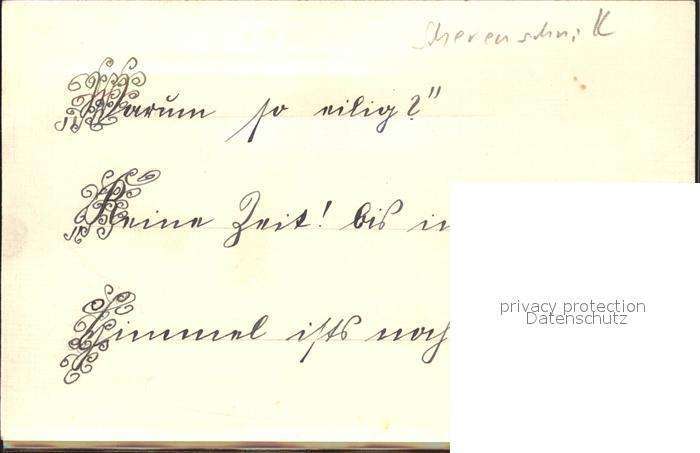 Scherenschnitt
"Warum so eilig?"
"Keine Zeit! bis in
Himmel ists noch
privacy protection
Datenschutz